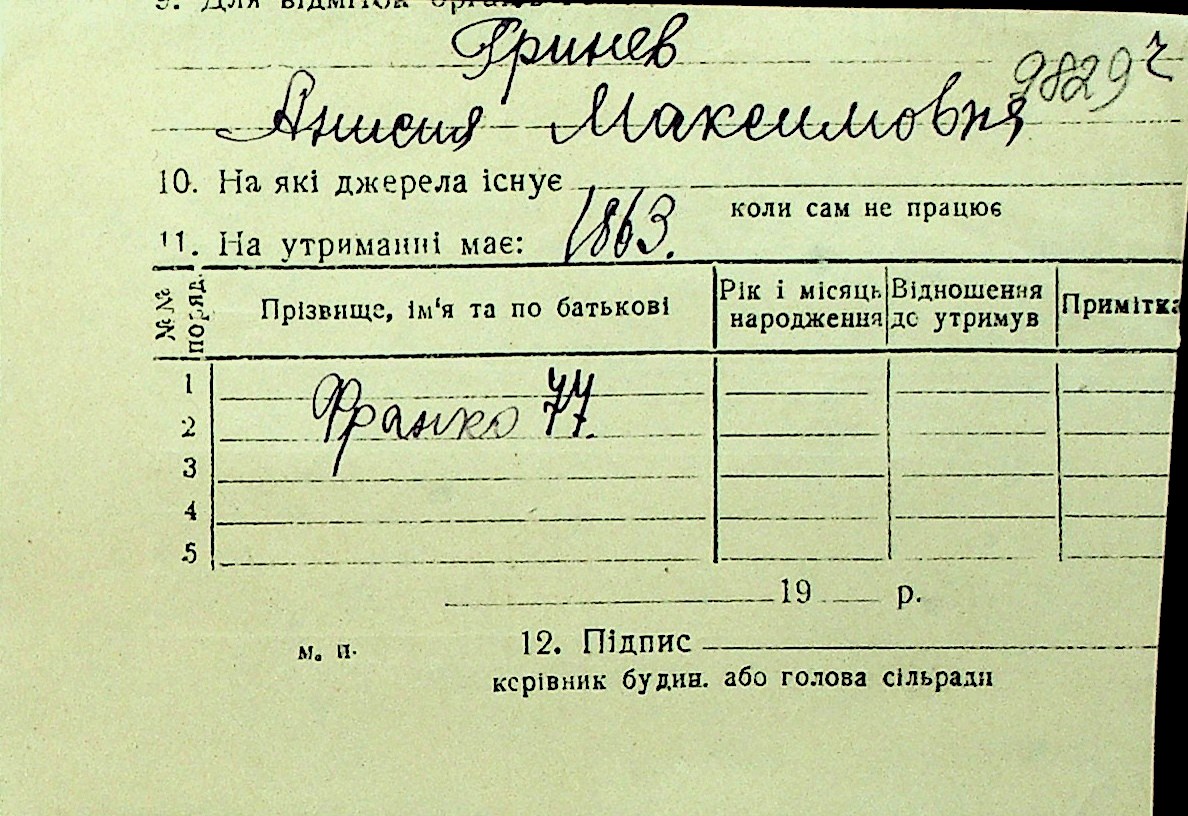 9. Для відміток
Гринев
9829 г
Анисия Максимовна
10. На які джерела існує
коли сам не працює
11. На утриманні має: 1863.
№№ поряд. Прізвище, ім'я та по батькові Рік і місяць народження Відношення до утримув Примітка
1
Франко 77.
2
3
4
5
19 р.
м. п. 12. Підпис
керівник будин. або голова сільради